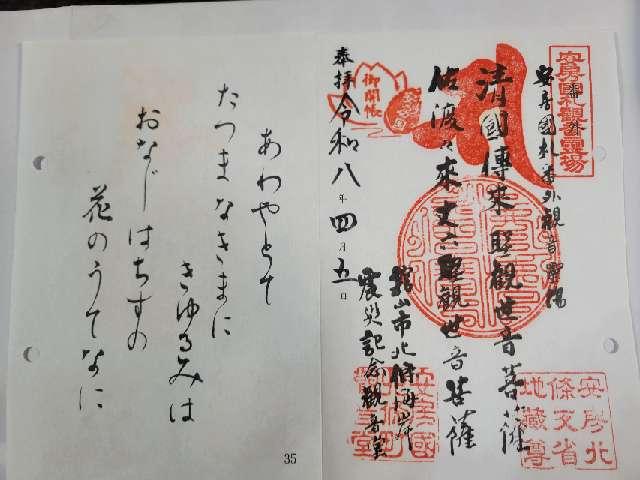 安房國札番外観音霊場
清國傳來聖観世音菩薩
佐渡ゟ來丈六聖観世音菩薩
館山市北條海岸
震災記念観音堂
奉拝
令和八年四月五日
御開帳
番外
安房北
條文省
地蔵尊
あわやとて
たつまなきまに
きゆるみは
おなじはちすの
花のうてなに
35